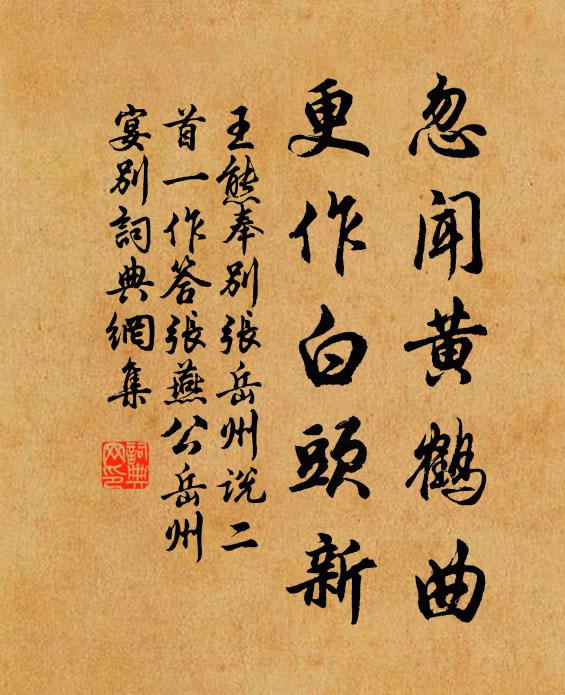 忽闻黄鹤曲
更作白頭新
王熊奉别張岳州说二
首一作答張燕公岳州
宴别詞典網集
詞典
网印